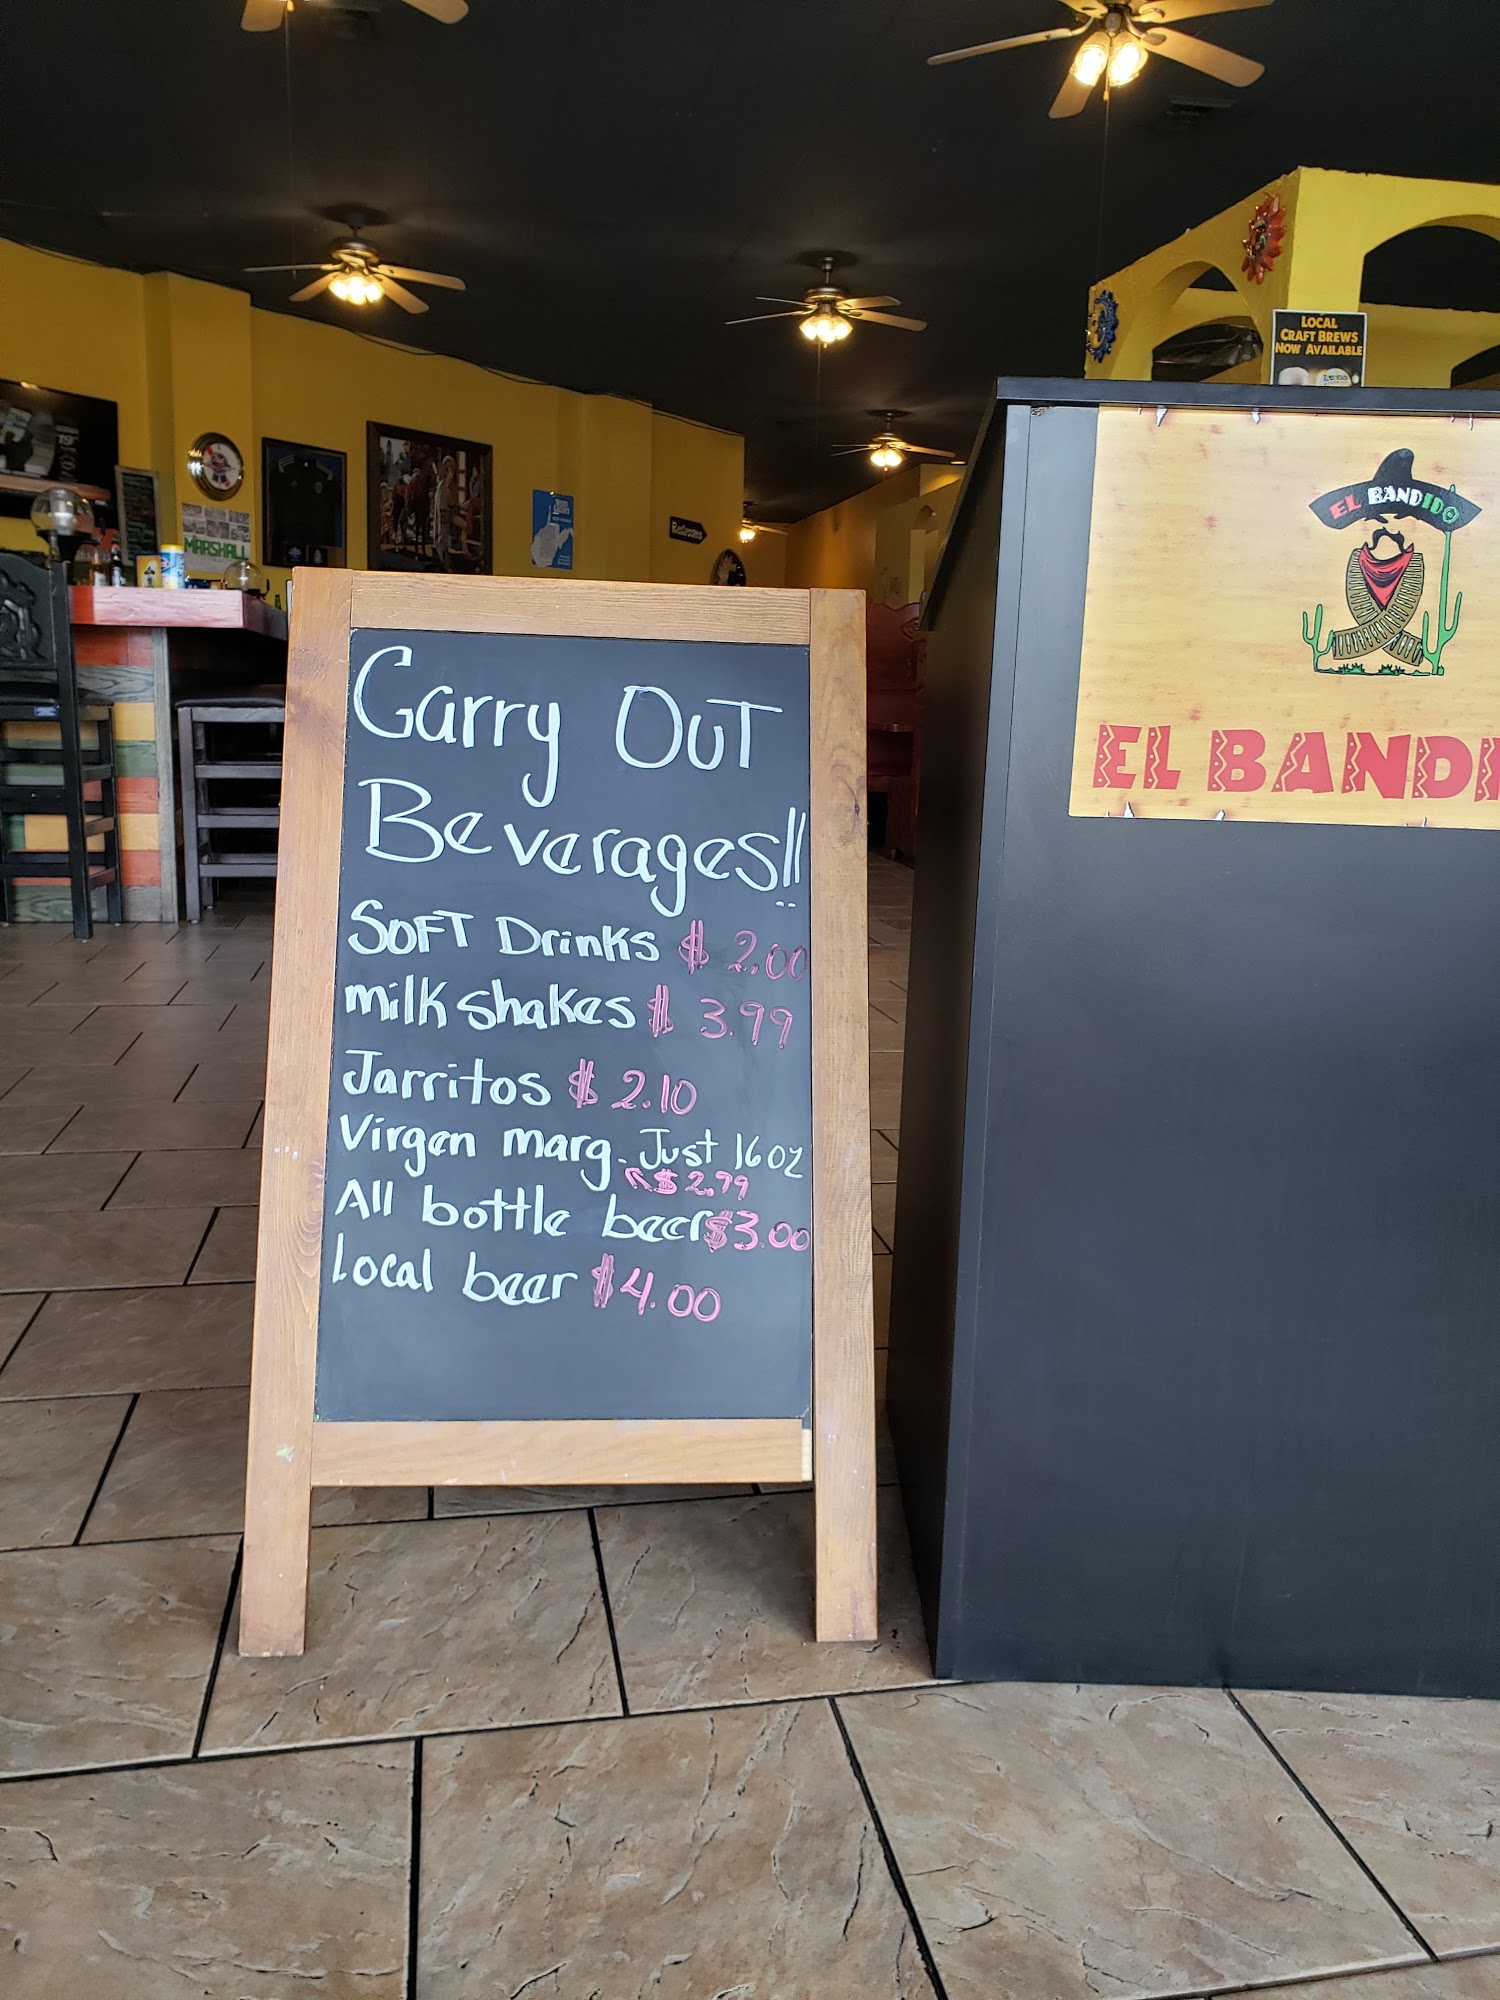 LOCAL
CRAFT BREWS
NOW AVAILABLE
EL BANDIDO
EL BANDI
MARSHALL
Restrooms
Carry OUT
Beverages!!
SOFT Drinks $ 2.00
milkshakes $ 3.99
Jarritos $ 2.10
Virgen marg. Just 16 oz
$ 2.99
All bottle beer $3.00
Local beer $4.00